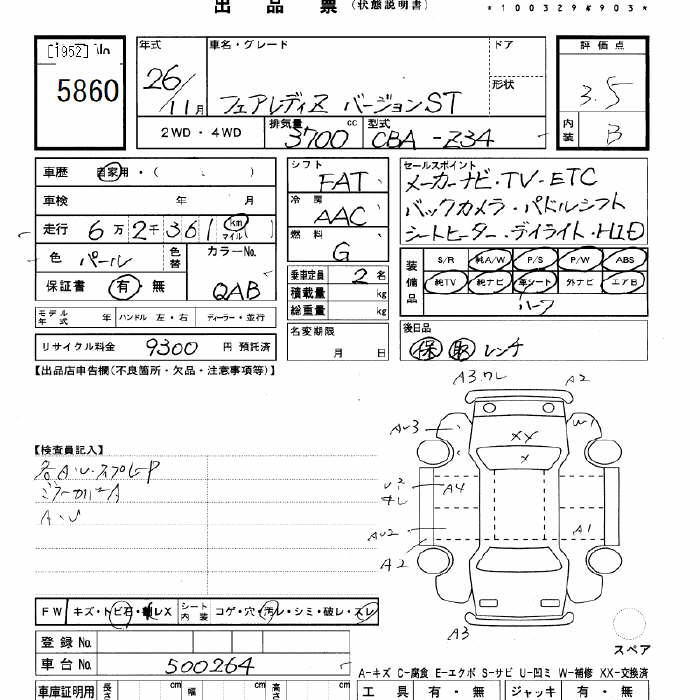 出品票 (状態説明書) *100329#903*
[1952] No
5860
年式 26/11月
車名・グレード フェアレディZ バージョンST
ドア
形状
2WD・4WD 排気量 3700 cc 型式 CBA-Z34
評価点 3.5
内装 B
車歴 自家用・( 、 )
車検 年 月
走行 6万2千361 km マイル
色 パール 色替 カラーNo. QAB
保証書 有・無
モデル年式 年 ハンドル 左・右 ディーラー・並行
リサイクル料金 9300 円 預託済
シフト FAT
冷房 AAC
燃料 G
乗車定員 2 名
積載量 kg
総重量 kg
名変期限 月 日
セールスポイント
メーカーナビ・TV・ETC
バックカメラ・パドルシフト
シートヒーター・デイライト・HID
装備品 S/R 純A/W P/S P/W ABS
純TV 純ナビ 革シート 外ナビ エアB
ハーフ
後日品
保 取 レンチ
【出品店申告欄(不良箇所・欠品・注意事項等)】
【検査員記入】
各A・U・スプレーP
ミラーカバーA
A・U
A3 ワレ A2
AU3 W1
XX
X
A4
U2
キレ
AU2 A1
A2
A3
スペア
FW キズ・トビ石・割レX シート内装 コゲ・穴・汚レ・シミ・破レ・スレ
登録No.
車台No. 500264
A-キズ C-腐食 E-エクボ S-サビ U-凹ミ W-補修 XX-交換済
車庫証明用 長さ cm 幅 cm 高さ cm
工具 有・無 ジャッキ 有・無